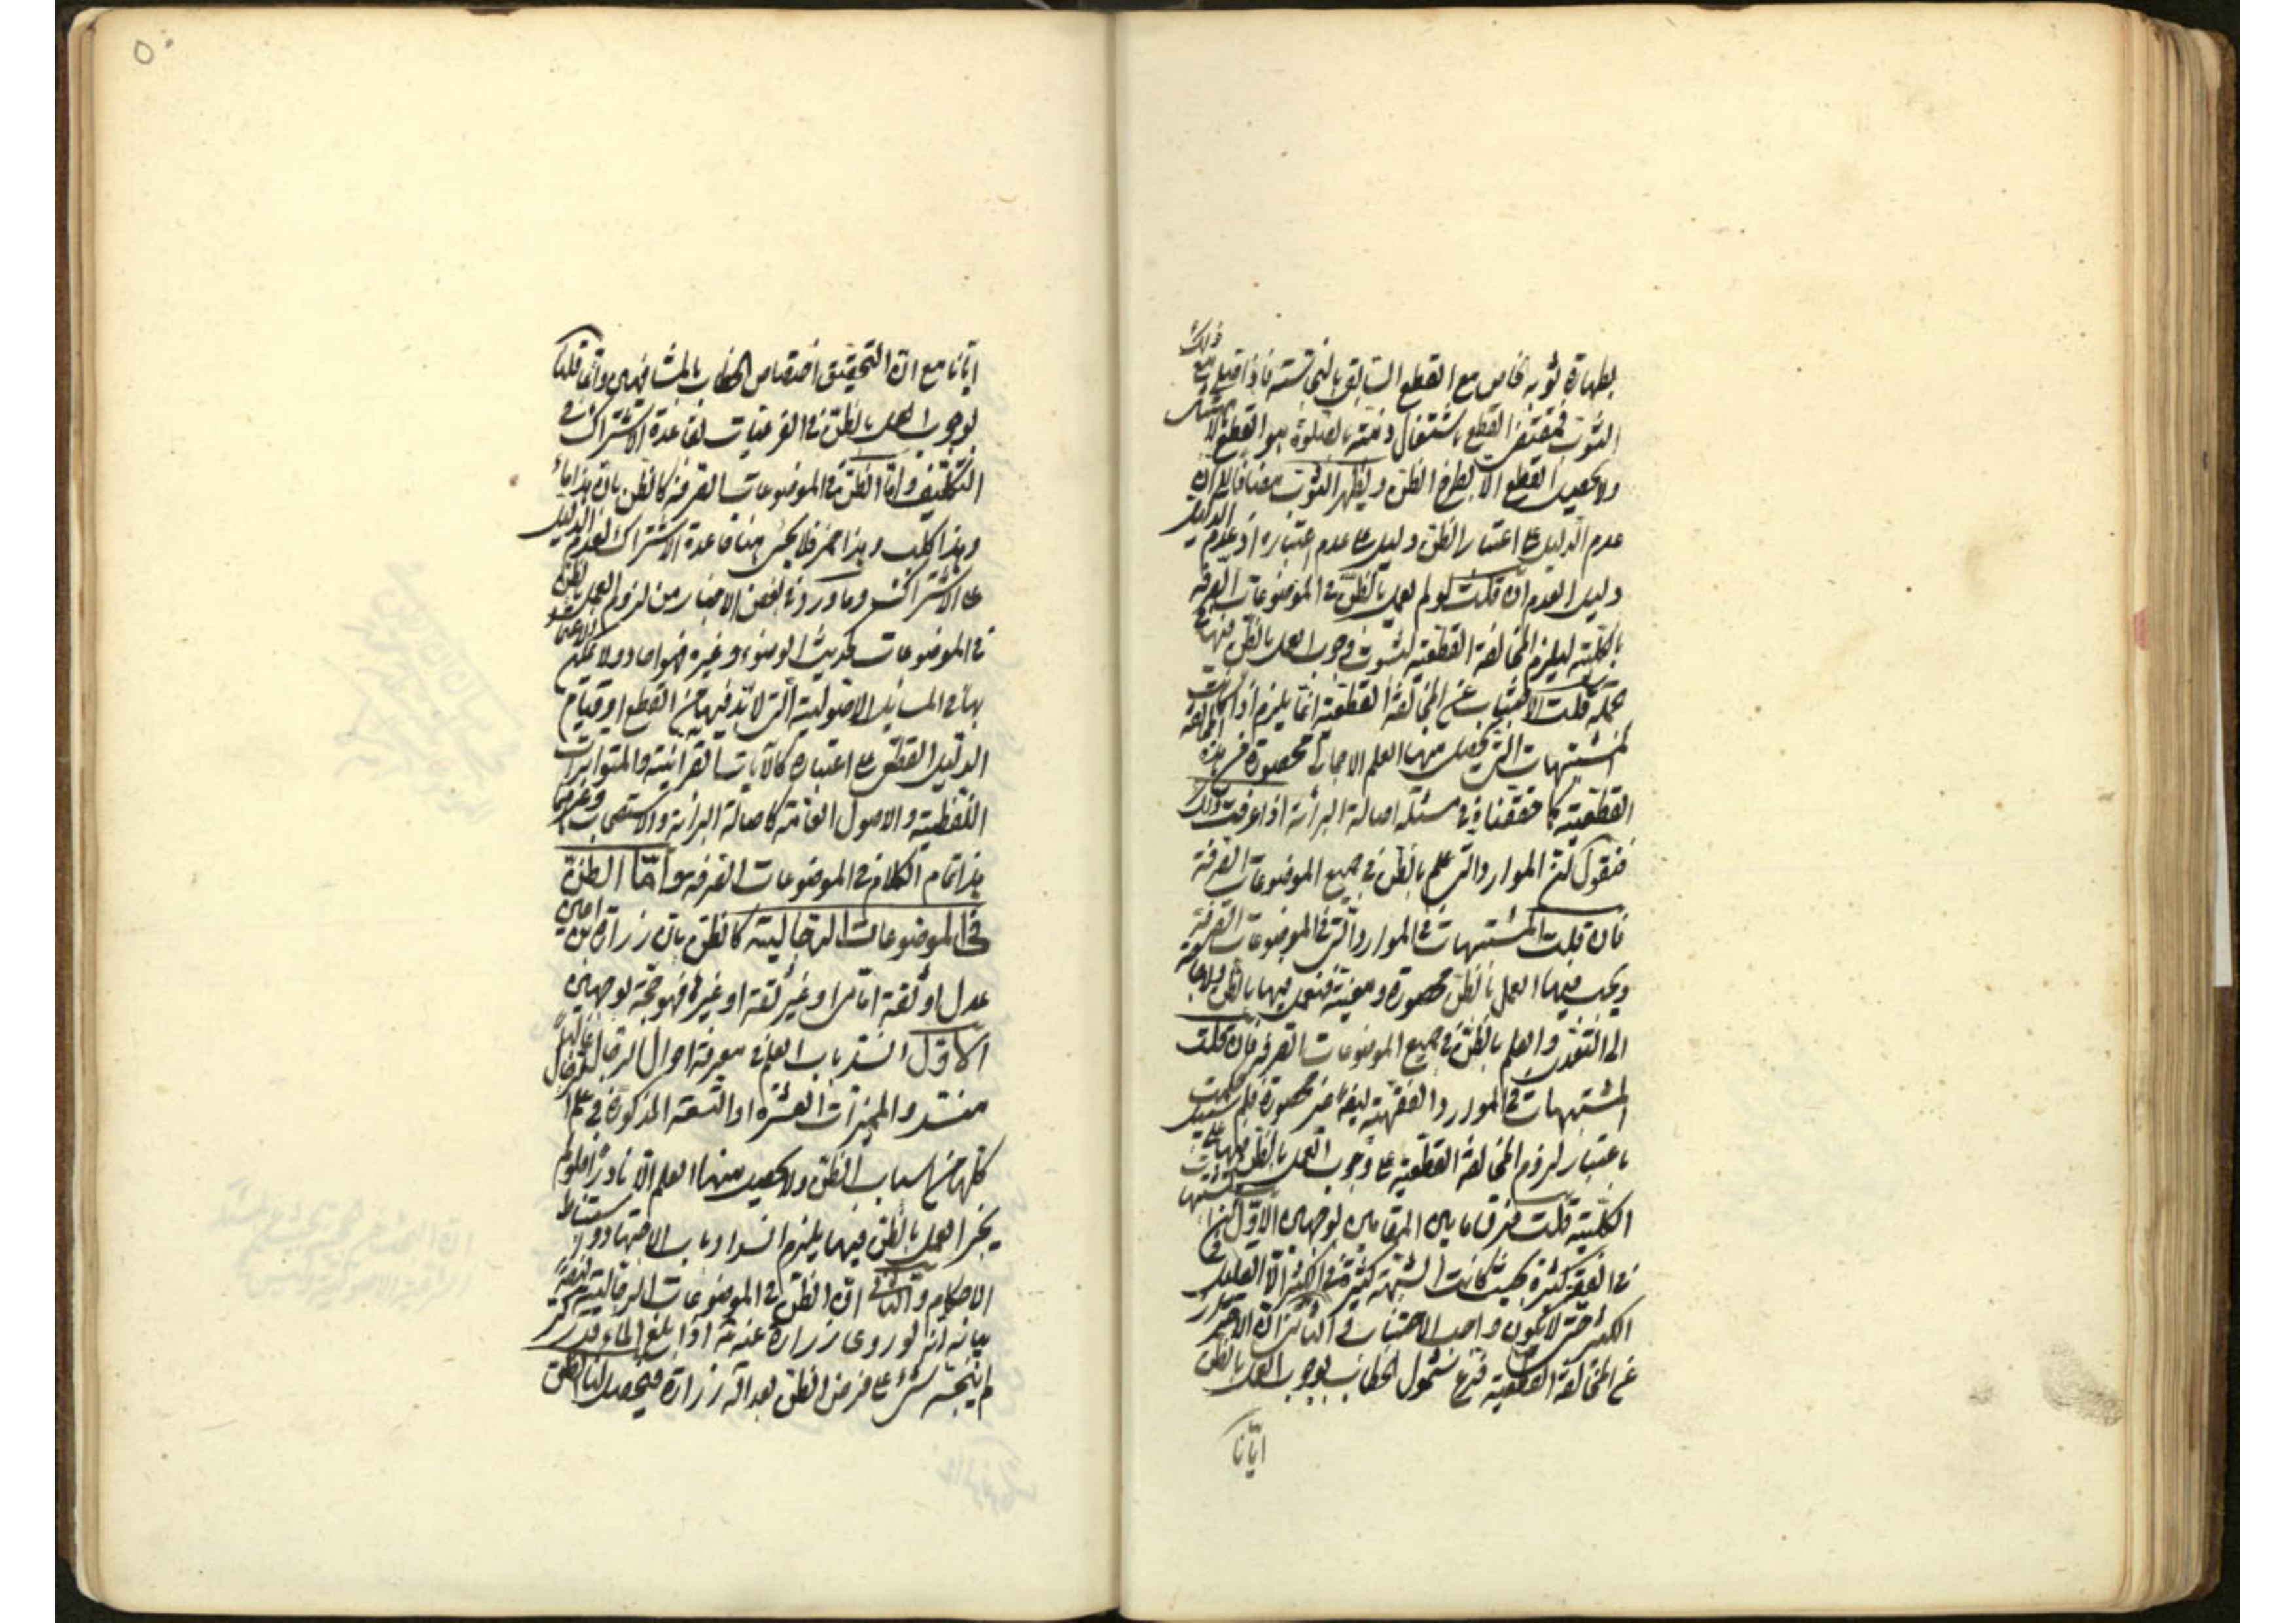 بطهارة ثوبه الخاص مع القطع السابق بالنجاسة فاذا صلى مع ذلك
الثوب فمقتضى القطع باشتغال ذمته بالصلوة هو القطع بالامتثال
ولا يحصل القطع الا بطرح الظن وبطهر الثوب مضافا الى ان
عدم الدليل على اعتبار الظن دليل على عدم اعتباره اذ عدم الدليل
دليل العدم فان قلت لو لم نعمل بالظن في الموضوعات الصرفة
بالكلية ليلزم المخالفة القطعية لثبوت وجوب العمل بالظن فيها في
الجملة قلت الاجتناب عن المخالفة القطعية انما يلزم اذا كانت
المشتبهات التي يحصل منها العلم الاجمالي محصورة من هذه المخالفة
القطعية كما حققناه في مسئلة اصالة البرائة اذا عرفت ذلك
فنقول ان الموارد التي علم بالظن في جميع الموضوعات الصرفة
فان قلت المشتبهات في الموارد التي في الموضوعات الصرفة
ويجب فيها العمل بالظن محصورة ومعينة فنعمل فيها بالظن ولا حاجة
الى التعدي والعلم بالظن في جميع الموضوعات الصرفة فان قلت
المشتبهات في الموارد الفقهية ايضا غير محصورة فلم حكمت
باعتبار لزوم المخالفة القطعية على وجوب العمل بالظن فيها على
الكلية قلت فرق ما بين المقامين لوجهين الاول ان المشتبهات
في الفقه كثيرة بحيث كانت الشبهة كثيرة في الكثير لا القليل في
الكثير حتى لا يكون واجب الاجتناب و الثاني ان الاحتراز
عن المخالفة القطعية فرع شمول الخطاب بوجوب العمل بالظن
ايّانا
ايّانا مع ان التحقيق اختصاص الخطاب بالمشافهين وانما قلنا
بوجوب العمل بالظن في الفرعيات لقاعدة الاشتراك في
التكليف واما الظن في الموضوعات الصرفة كالظن بان هذا ماء
وهذا كلب وهذا خمر فلا يجري هنا قاعدة الاشتراك لعدم الدليل
على الاشتراك وما ورد في بعض الاخبار من لزوم العمل بالظن
في الموضوعات كحديث الوضوء وغيره فهو احاد ولا يمكن الاعتماد
بها في المسائل الاصولية التي لا بد فيها من القطع او قيام
الدليل القطعي على اعتباره كالايات القرانية والمتواترات
اللفظية والاصول العامة كاصالة البرائة والاستصحاب وغيرهما
هذا تمام الكلام في الموضوعات الصرفة واما الظن
في الموضوعات الرجالية كالظن بان زرارة بن اعين
عدل او ثقة امامي او غير ثقة او غيره فهو حجة لوجهين
الاول انسد باب العلم في معرفة احوال الرجال غالبا
منسد والمميزات العشرة او التسعة المذكورة في علم الرجال
كلها من اسباب الظن ولا يحصل منها العلم الا نادرا فلو لم
يجز العمل بالظن فيها يلزم انسداد باب الاجتهاد واستنباط
الاحكام والثاني ان الظن في الموضوعات الرجالية
بيانه انه لو روى زرارة عنه انه اذا بلغ الماء قدر كر
لم ينجسه شيء على فرض الظن بعدالة زرارة فيحصل لنا الظن